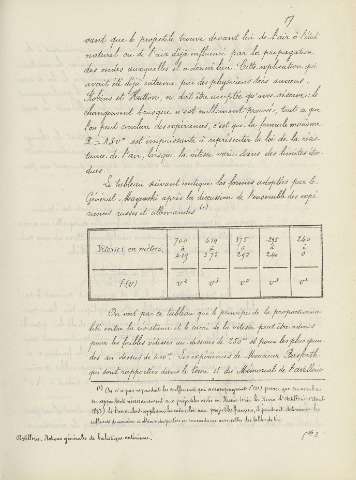 17
vant que le projectile trouve devant lui de l'air à l'état
naturel ou de l'air déjà influencé par la propagation
des ondes auxquelles il a donné lieu. Cette explication qui
avait été déjà retenue par des physiciens très anciens,
Robins et Hutton, ne doit être acceptée qu'avec réserve; le
changement brusque n'est nullement prouvé, tout ce que
l'on peut conclure des expériences, c'est que la formule monôme
est impuissante à représenter la loi de la résis-
tance de l'air, lorsque la vitesse varie dans des limites éten-
dues
Le tableau suivant indique les formes adoptées par le
Général Mayevski après la discussion de l'ensemble des expé-
riences russes et allemandes (1)
Vitesses en mètres. 700 à 419 419 à 375 375 à 295 295 à 240 240 à 0
f(v) v² v³ v⁵ v³ v²
On voit par ce tableau que le principe de la proportionna-
lité entre la résistance et le carré de la vitesse peut être admis
pour les faibles vitesses au-dessous de 240m et pour les plus gran-
des au dessus de 420m. Les expériences de Monsieur Bashforth
qui sont rapportées dans le tome II du Mémorial de l'artillerie
(1) On n'a pas reproduit les coefficients qui accompagnent f(v) parce que
Artillerie. Notions générales de balistique extérieure.